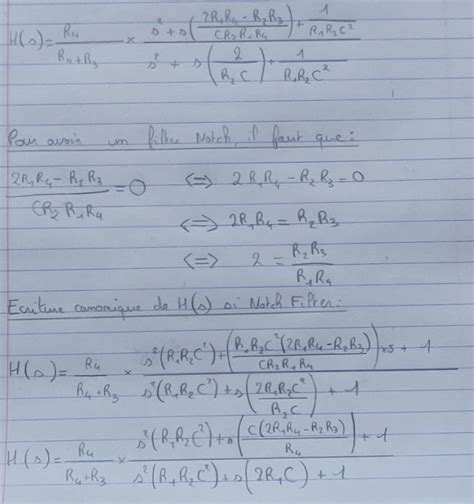 H(s) = R4/(R4+R3) × (s² + s((2R1R4 - R2R3)/(CR2R1R4)) + 1/(R1R2C²))/(s² + s(2/(R2C)) + 1/(R1R2C²))
Pour avoir un filtre Notch, il faut que:
(2R1R4 - R2R3)/(CR2R1R4) = 0 <=> 2R1R4 - R2R3 = 0
<=> 2R1R4 = R2R3
<=> 2 = R2R3/(R1R4)
Ecriture canonique de H(s) si Notch Filter:
H(s) = R4/(R4+R3) × (s²(R1R2C²) + ((R1R2C²(2R1R4 - R2R3))/(CR2R1R4))×s + 1)/(s²(R1R2C²) + s(2R1R2C²/(R2C)) + 1)
H(s) = R4/(R4+R3) × (s²(R1R2C²) + s((C(2R1R4 - R2R3))/R4) + 1)/(s²(R1R2C²) + s(2R1C) + 1)